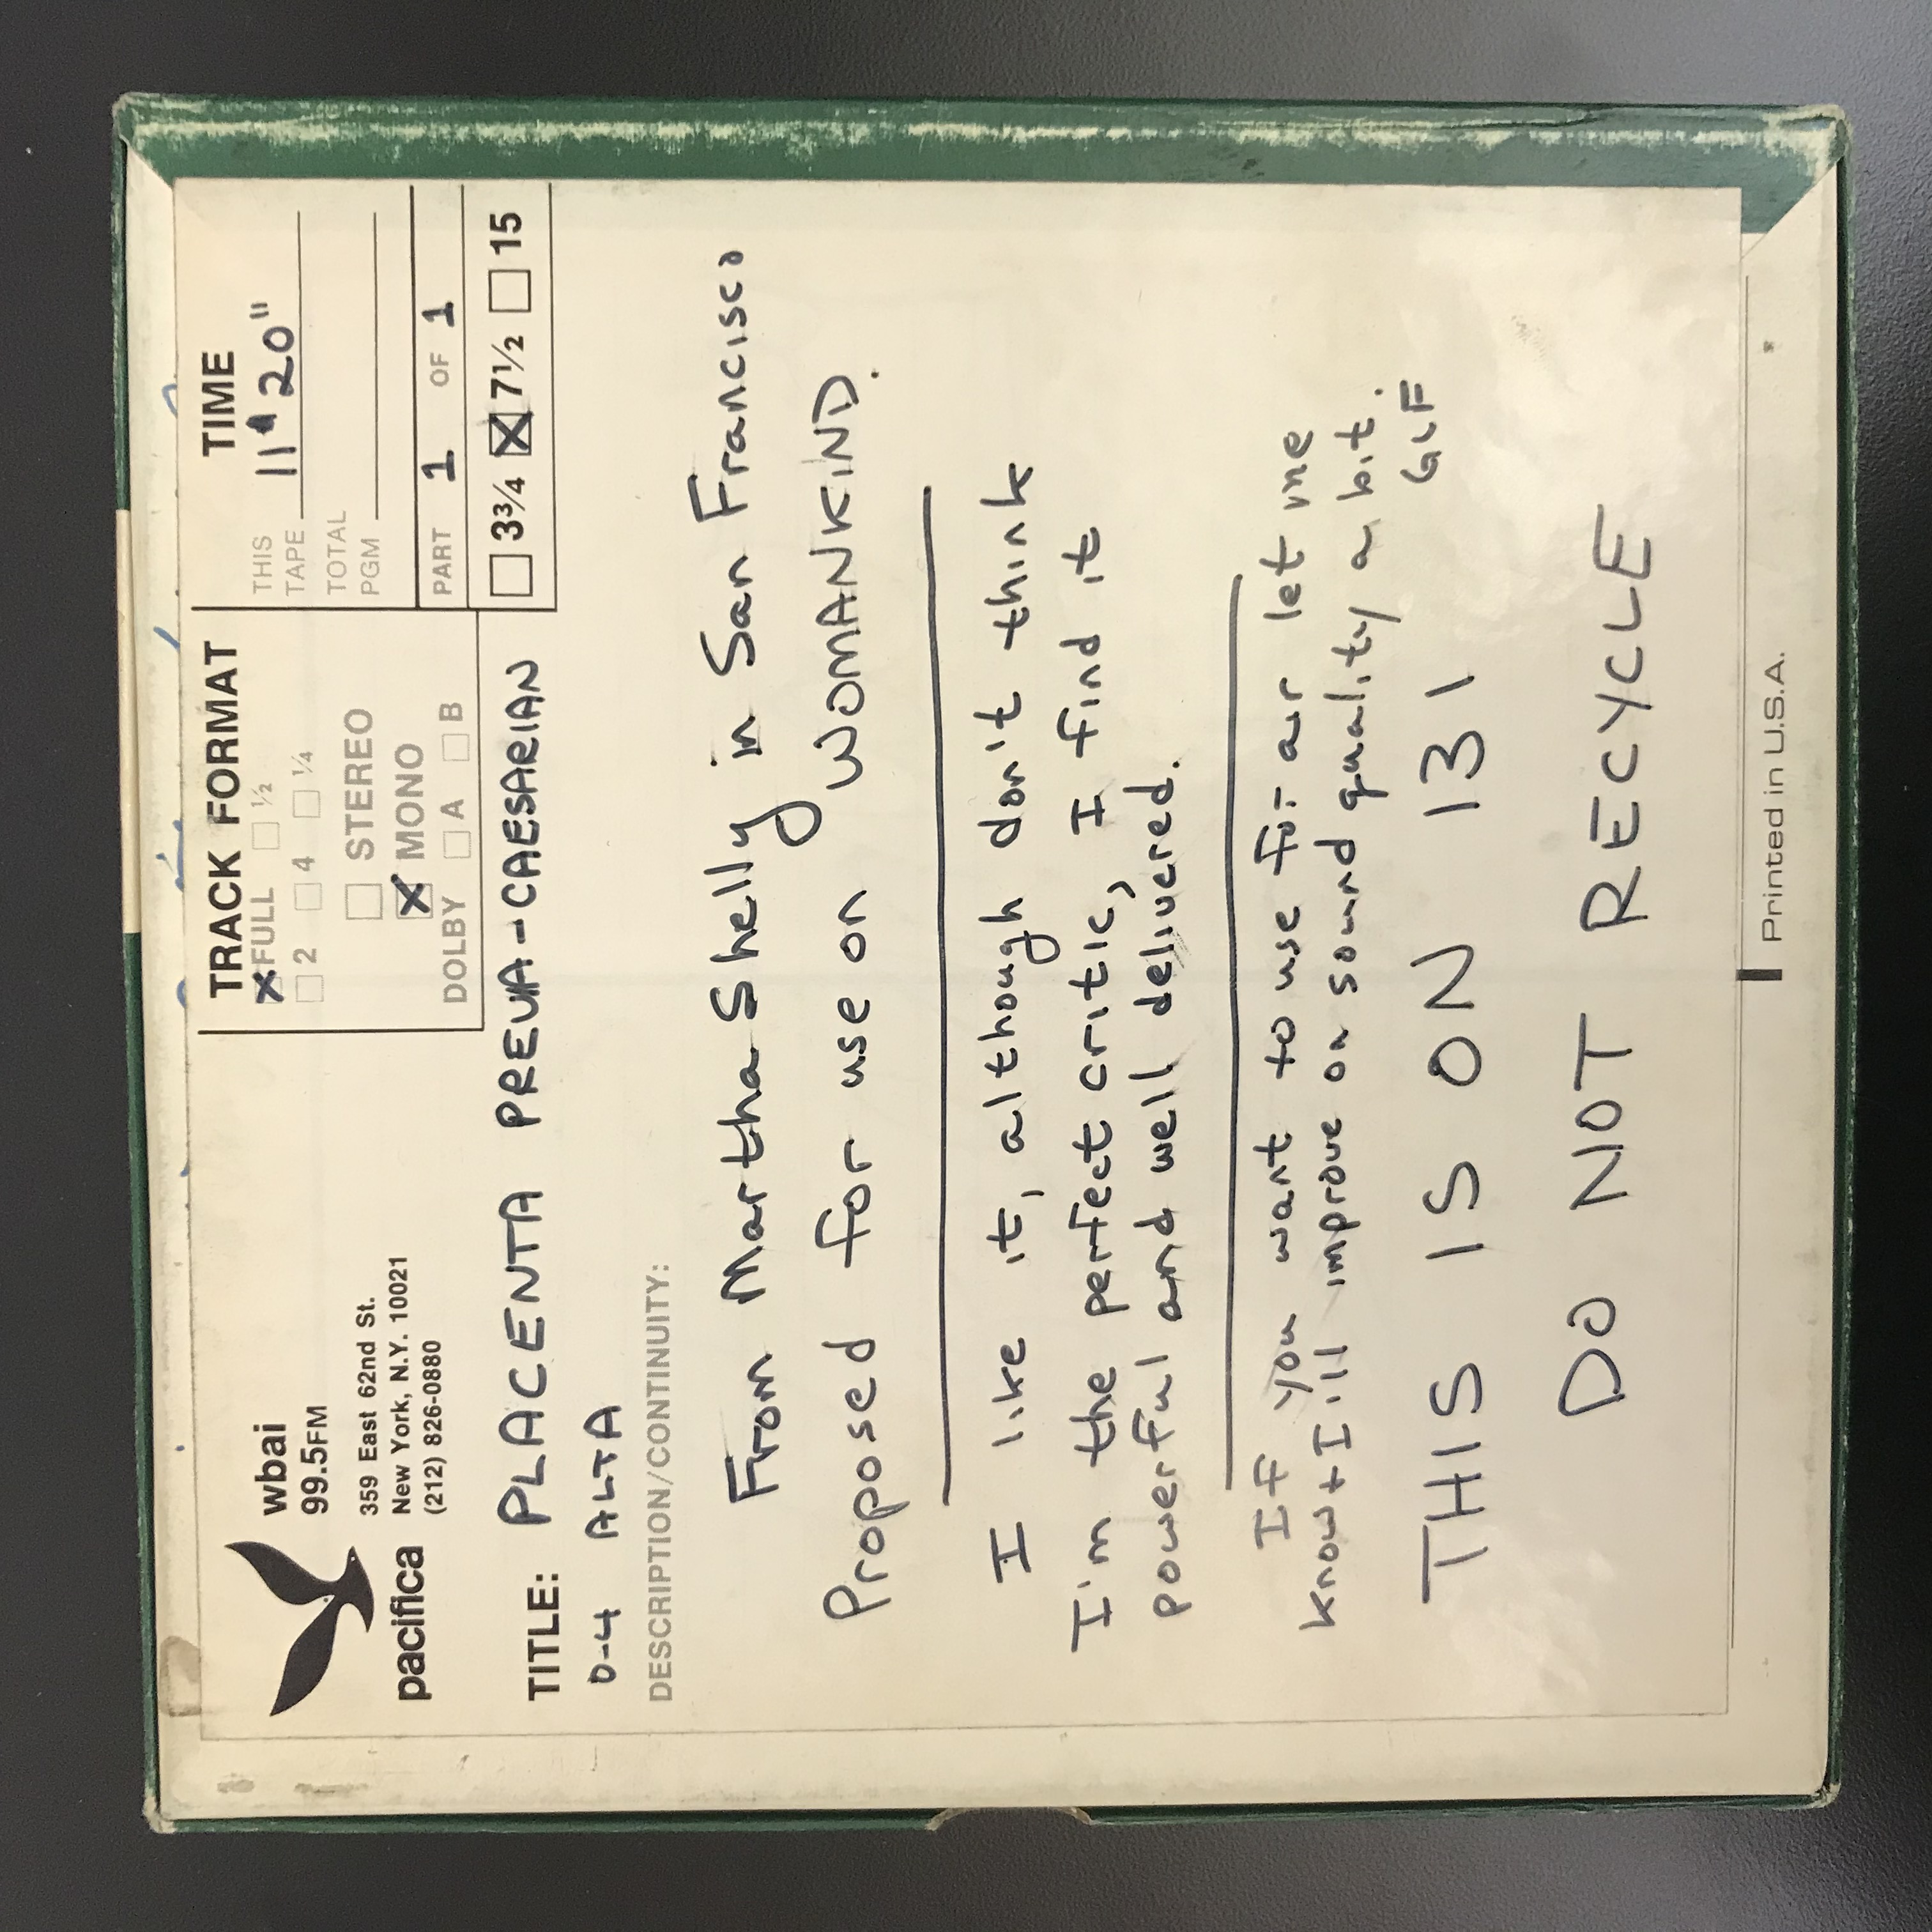 pacifica
wbai
99.5FM
359 East 62nd St.
New York, N.Y. 10021
(212) 826-0880
TRACK FORMAT
X FULL ½
2 4 ¼
STEREO
X MONO
DOLBY A B
TIME
THIS
TAPE 11" 20"
TOTAL
PGM
PART 1 OF 1
3¾ X 7½ 15
TITLE: PLACENTA PREVIA-CAESARIAN
ALTA
DESCRIPTION/CONTINUITY:
From Martha Shelly in San Francisco
Proposed for use on WOMANKIND.
I like it, although don't think
I'm the perfect critic, I find it
powerful and well delivered.
If you want to use for air let me
know + I'll improve on sound quality a bit.
THIS IS ON 131
DO NOT RECYCLE
Printed in U.S.A.